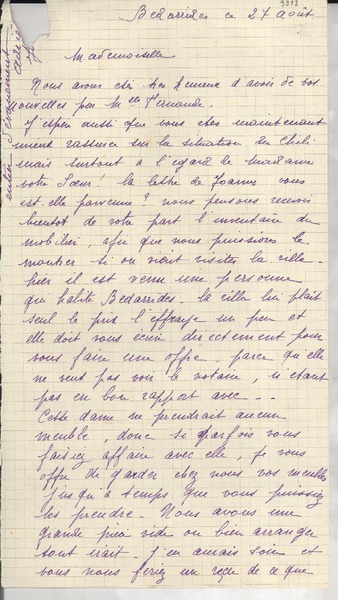 9313
Bedarrides ce 27 Août
Mademoiselle
Nous avons étés très heureux d'avoir de vos
nouvelles par Melle Fernande.
J'espère aussi que vous êtes maintenant
mieux rassurée sur la situation du Chili
mais surtout à l'égard de Madame
votre Sœur! la lettre de Joanny vous
est elle parvenue? nous pensons recevoir
bientot de votre part l'inventaire du
mobilier, afin que nous puissions le
montrer si on vient visiter la villa.
hier il est venu une personne
qui habite Bedarrides. la villa lui plait
seul le prix l'effraye un peu et
elle doit vous écrire directement pour
vous faire une offre. parce qu'elle
ne veut pas voir le notaire, n'étant
pas en bon rapport avec...
Cette dame ne prendrait aucun
meuble, donc si parfois vous
faisiez affaire avec elle, je vous
offre de garder chez nous vos meubles
jusqu'à temps que vous puissiez
les prendre. Nous avons une
grande pièce vide ou bien arranger
tout irait. J'en aurais soin et
vous nous feriez un reçu de ce que
entier